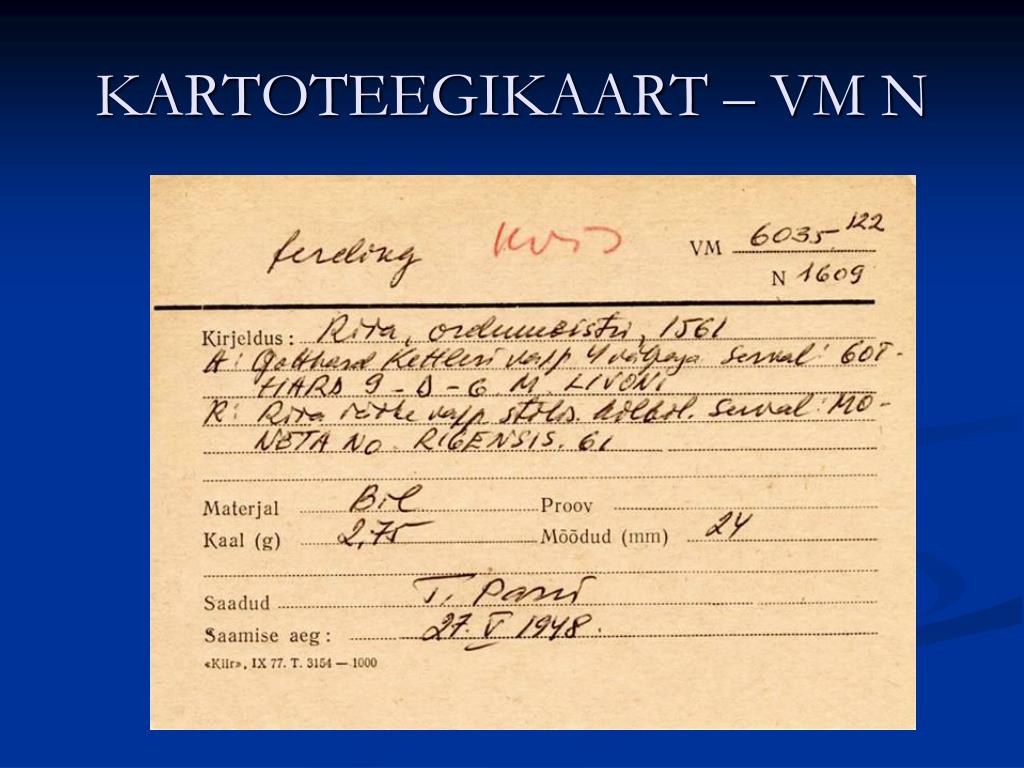 KARTOTEEGIKAART – VM N
ferding
VM 6035 122
N 1609
Kirjeldus: Riia, ordumeistri, 1561
A: Gotthard Kettleri vapp 4 väljaga Serval: GOT-
HARD 9 - D - G. M. LIVONI
R: Riia väike vapp Serval: MO-
NETA NO. RIGENSIS. 61
Materjal Bil Proov
Kaal (g) 2,75 Mõõdud (mm) 24
Saadud T. Parri
Saamise aeg: 27. V 1948.
«Kiir», IX 77. T. 3154 — 1000